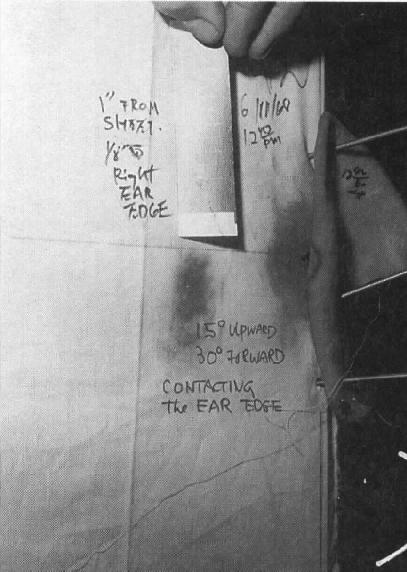 1" FROM
SHEET.
1/8" TO
Right
EAR
EDGE
6/11/68
12 pm
15° UPWARD
30° FORWARD
CONTACTING
The EAR EDGE